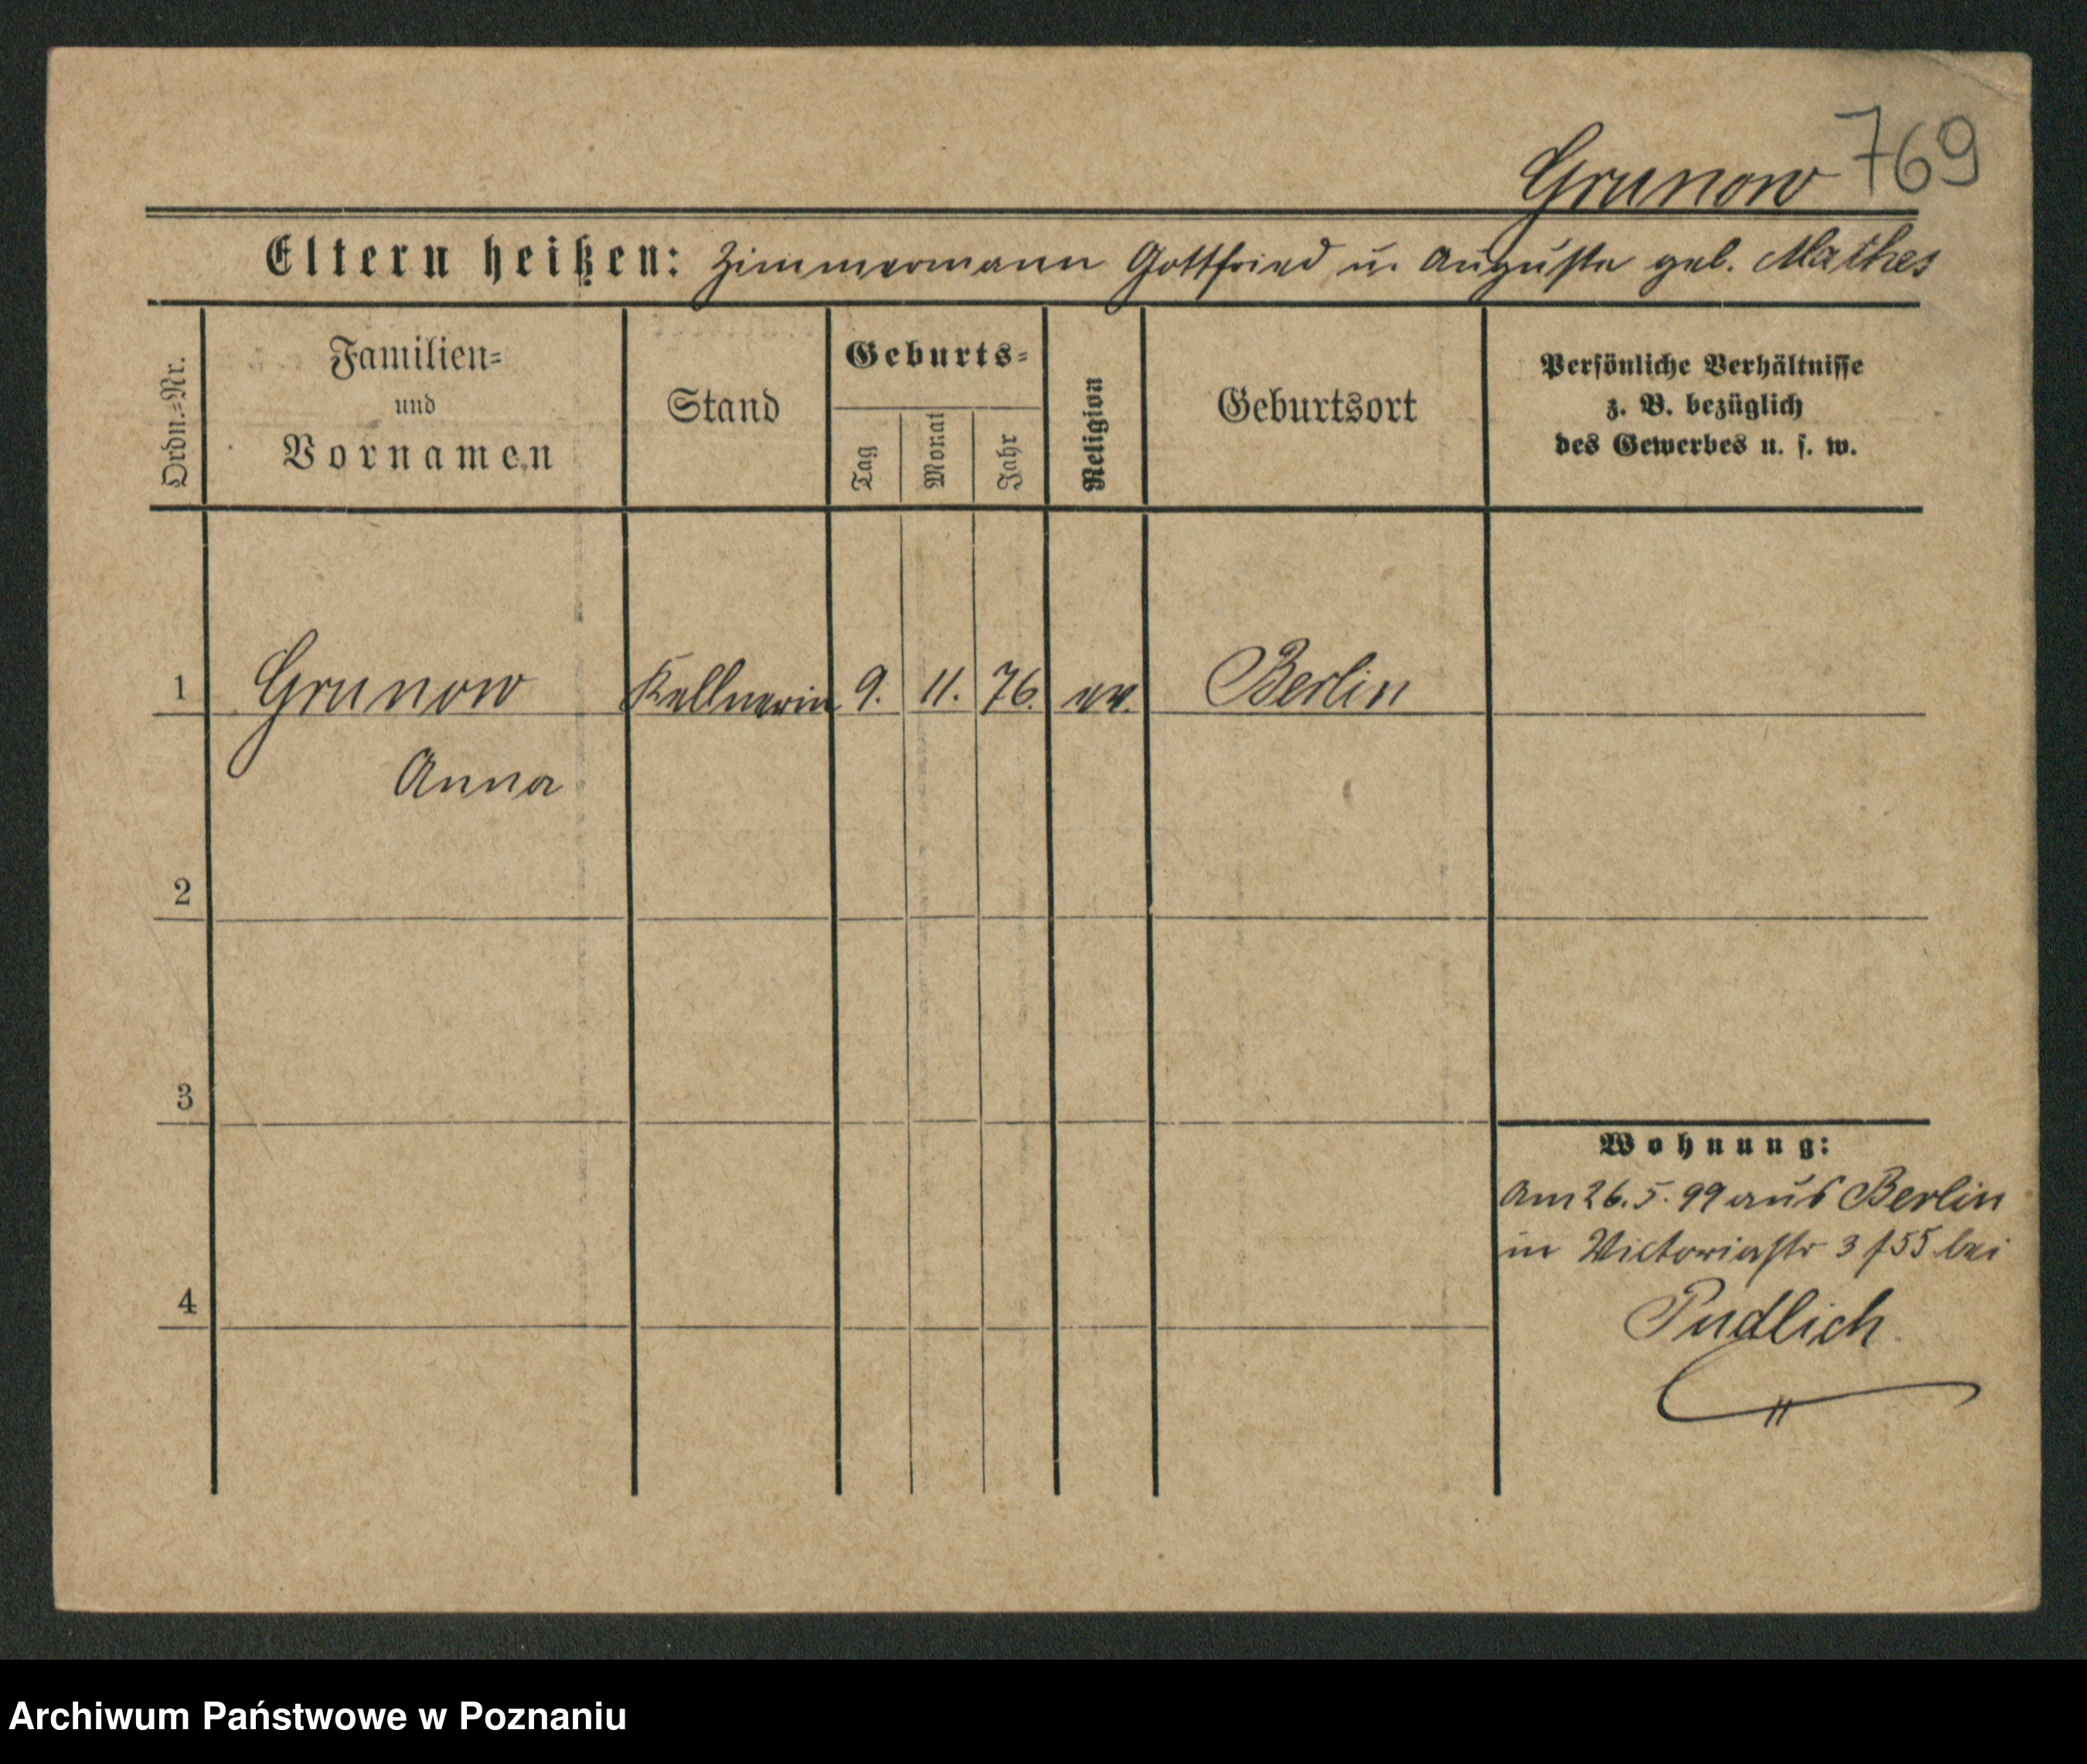 769
Grunow
Eltern heißen: Zimmermann Gottfried u. Auguste geb. Mathes
Ordn.=Nr.
Familien=
und
Vornamen
Stand
Geburts=
Tag
Monat
Jahr
Religion
Geburtsort
Persönliche Verhältnisse
z. B. bezüglich
des Gewerbes u. s. w.
1 Grunow Kellnerin 9. 11. 76. ev. Berlin
Anna
2
3
4
Wohnung:
Am 26. 5. 99 aus Berlin
in Victoriastr 3 / 55 bei
Pudlich
Archiwum Państwowe w Poznaniu